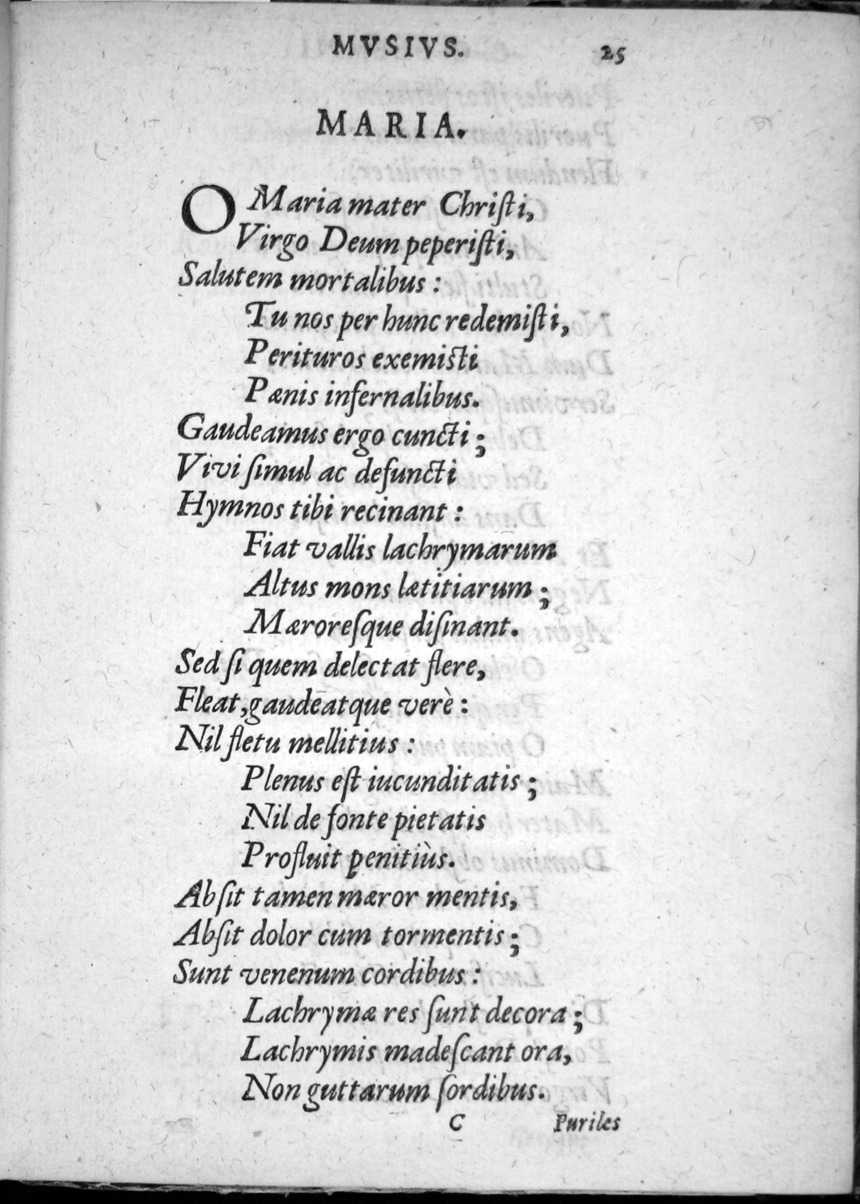 MVSIVS. 25
MARIA.
O Maria mater Chriſti,
Virgo Deum peperiſti,
Salutem mortalibus:
Tu nos per hunc redemiſti,
Perituros exemiſti
Pænis infernalibus.
Gaudeamus ergo cuncti;
Vivi ſimul ac defuncti
Hymnos tibi recinant:
Fiat vallis lachrymarum
Altus mons lætitiarum;
Mæroreſque diſinant.
Sed ſi quem delectat flere,
Fleat, gaudeatque verè:
Nil fletu mellitius:
Plenus eſt iucunditatis;
Nil de fonte pietatis
Profluit penitiùs.
Abſit tamen mæror mentis,
Abſit dolor cum tormentis;
Sunt venenum cordibus:
Lachrymæ res ſunt decora;
Lachrymis madeſcant ora,
Non guttarum ſordibus.
C Puriles